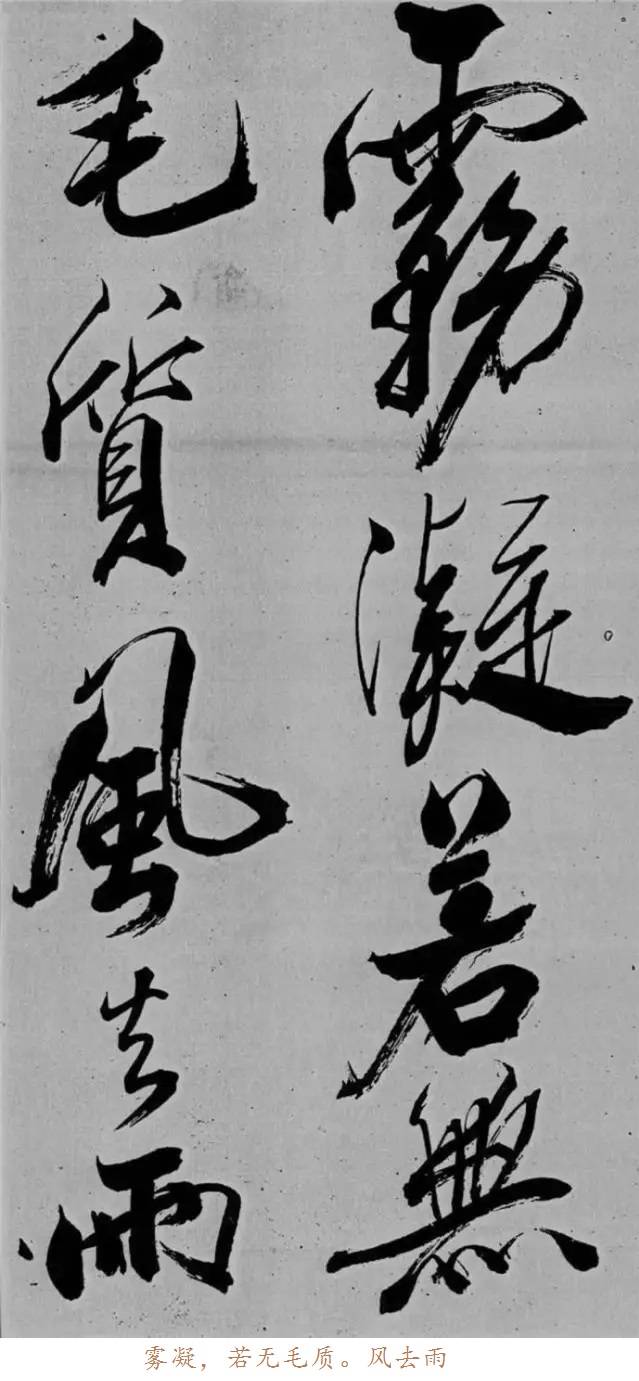 霧凝若無
毛質風去雨
雾凝，若无毛质。风去雨